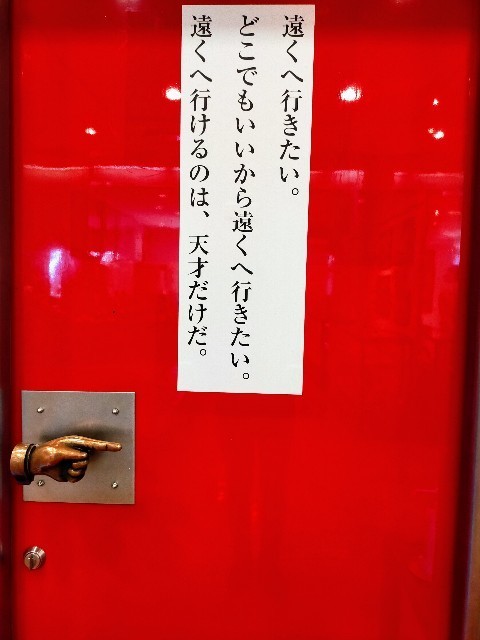 遠くへ行きたい。
どこでもいいから遠くへ行きたい。
遠くへ行けるのは、天才だけだ。